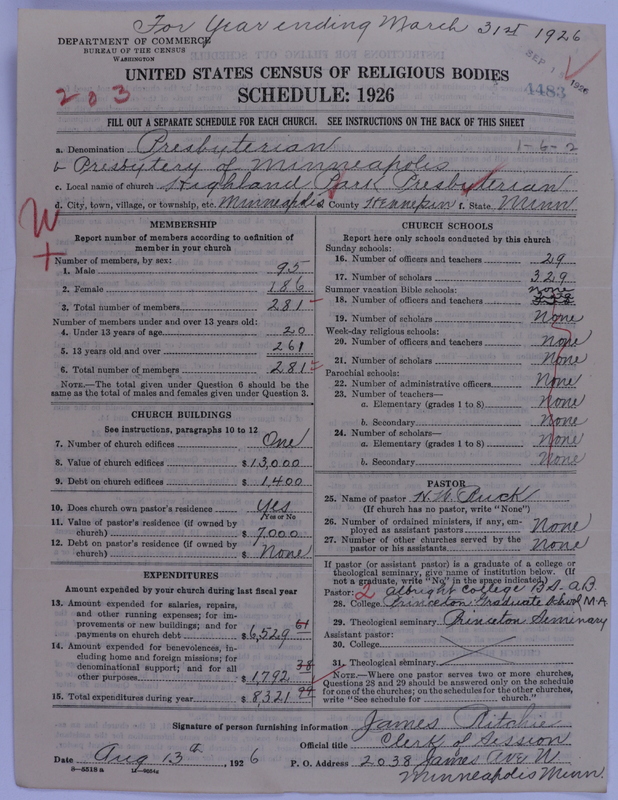 For Year ending March 31st 1926
DEPARTMENT OF COMMERCE
BUREAU OF THE CENSUS
WASHINGTON
SEP 1 1926
4483
UNITED STATES CENSUS OF RELIGIOUS BODIES
203
SCHEDULE: 1926
FILL OUT A SEPARATE SCHEDULE FOR EACH CHURCH. SEE INSTRUCTIONS ON THE BACK OF THIS SHEET
a. Denomination Presbyterian 1-6-2
b Presbytery of Minneapolis
c. Local name of church Highland Park Presbyterian
d. City, town, village, or township, etc. Minneapolis County Hennepin f. State Minn
W
+
MEMBERSHIP
Report number of members according to definition of
member in your church
Number of members, by sex:
1. Male 95
2. Female 186
3. Total number of members 281
Number of members under and over 13 years old:
4. Under 13 years of age 20
5. 13 years old and over 261
6. Total number of members 281
NOTE.—The total given under Question 6 should be the
same as the total of males and females given under Question 3.
CHURCH BUILDINGS
See instructions, paragraphs 10 to 12
7. Number of church edifices One
8. Value of church edifices $13,000
9. Debt on church edifices $1,400
10. Does church own pastor's residence Yes
(Yes or No)
11. Value of pastor's residence (if owned by
church) $7,000
12. Debt on pastor's residence (if owned by
church) $None
EXPENDITURES
Amount expended by your church during last fiscal year
13. Amount expended for salaries, repairs,
and other running expenses; for im-
provements or new buildings; and for
payments on church debt $6,529 61
14. Amount expended for benevolences, in-
cluding home and foreign missions; for
denominational support; and for all
other purposes $1,792 38
15. Total expenditures during year $8,321 99
CHURCH SCHOOLS
Report here only schools conducted by this church
Sunday schools:
16. Number of officers and teachers 29
17. Number of scholars 329
Summer vacation Bible schools: none
18. Number of officers and teachers
19. Number of scholars None
Week-day religious schools:
20. Number of officers and teachers None
21. Number of scholars None
Parochial schools:
22. Number of administrative officers None
23. Number of teachers—
a. Elementary (grades 1 to 8) None
b. Secondary None
24. Number of scholars—
a. Elementary (grades 1 to 8) None
b. Secondary None
PASTOR
25. Name of pastor
(If church has no pastor, write "None")
26. Number of ordained ministers, if any, em-
ployed as assistant pastors None
27. Number of other churches served by the
pastor or his assistants None
If pastor (or assistant pastor) is a graduate of a college or
theological seminary, give name of institution below. (If
not a graduate, write "No" in the space indicated.)
Pastor: 2 Albright College B.S. A.B.
28. College Princeton Graduate School M.A.
29. Theological seminary Princeton Seminary
Assistant pastor:
30. College
31. Theological seminary
NOTE.—Where one pastor serves two or more churches,
Questions 28 and 29 should be answered only on the schedule
for one of the churches; on the schedules for the other churches,
write "See schedule for church."
Signature of person furnishing information James Ritchie
Official title Clerk of Session
Date Aug 13th, 1926 P. O. Address 2038 James Ave N
8-5518 a
Minneapolis Minn.